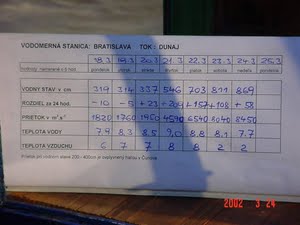 VODOMERNÁ STANICA: BRATISLAVA TOK: DUNAJ
18.3 19.3 20.3 21.3 22.3 23.3 24.3 25.3
hodnoty namerané o 6 hod. pondelok utorok streda štvrtok piatok sobota nedeľa pondelok
VODNÝ STAV v cm 319 314 337 546 703 811 869
ROZDIEL za 24 hod. -10 -5 +23 +209 +157 +108 +58
PRIETOK v m³ s⁻¹ 1820 1760 1950 4590 6540 8040 8450
TEPLOTA VODY 7.9 8.3 8.5 9.0 8.8 8.1 7.7
TEPLOTA VZDUCHU 6 7 7 8 8 2 2
Prietok pri vodnom stave 200 - 400cm je ovplyvnený haťou v Čunove
2002 3 24